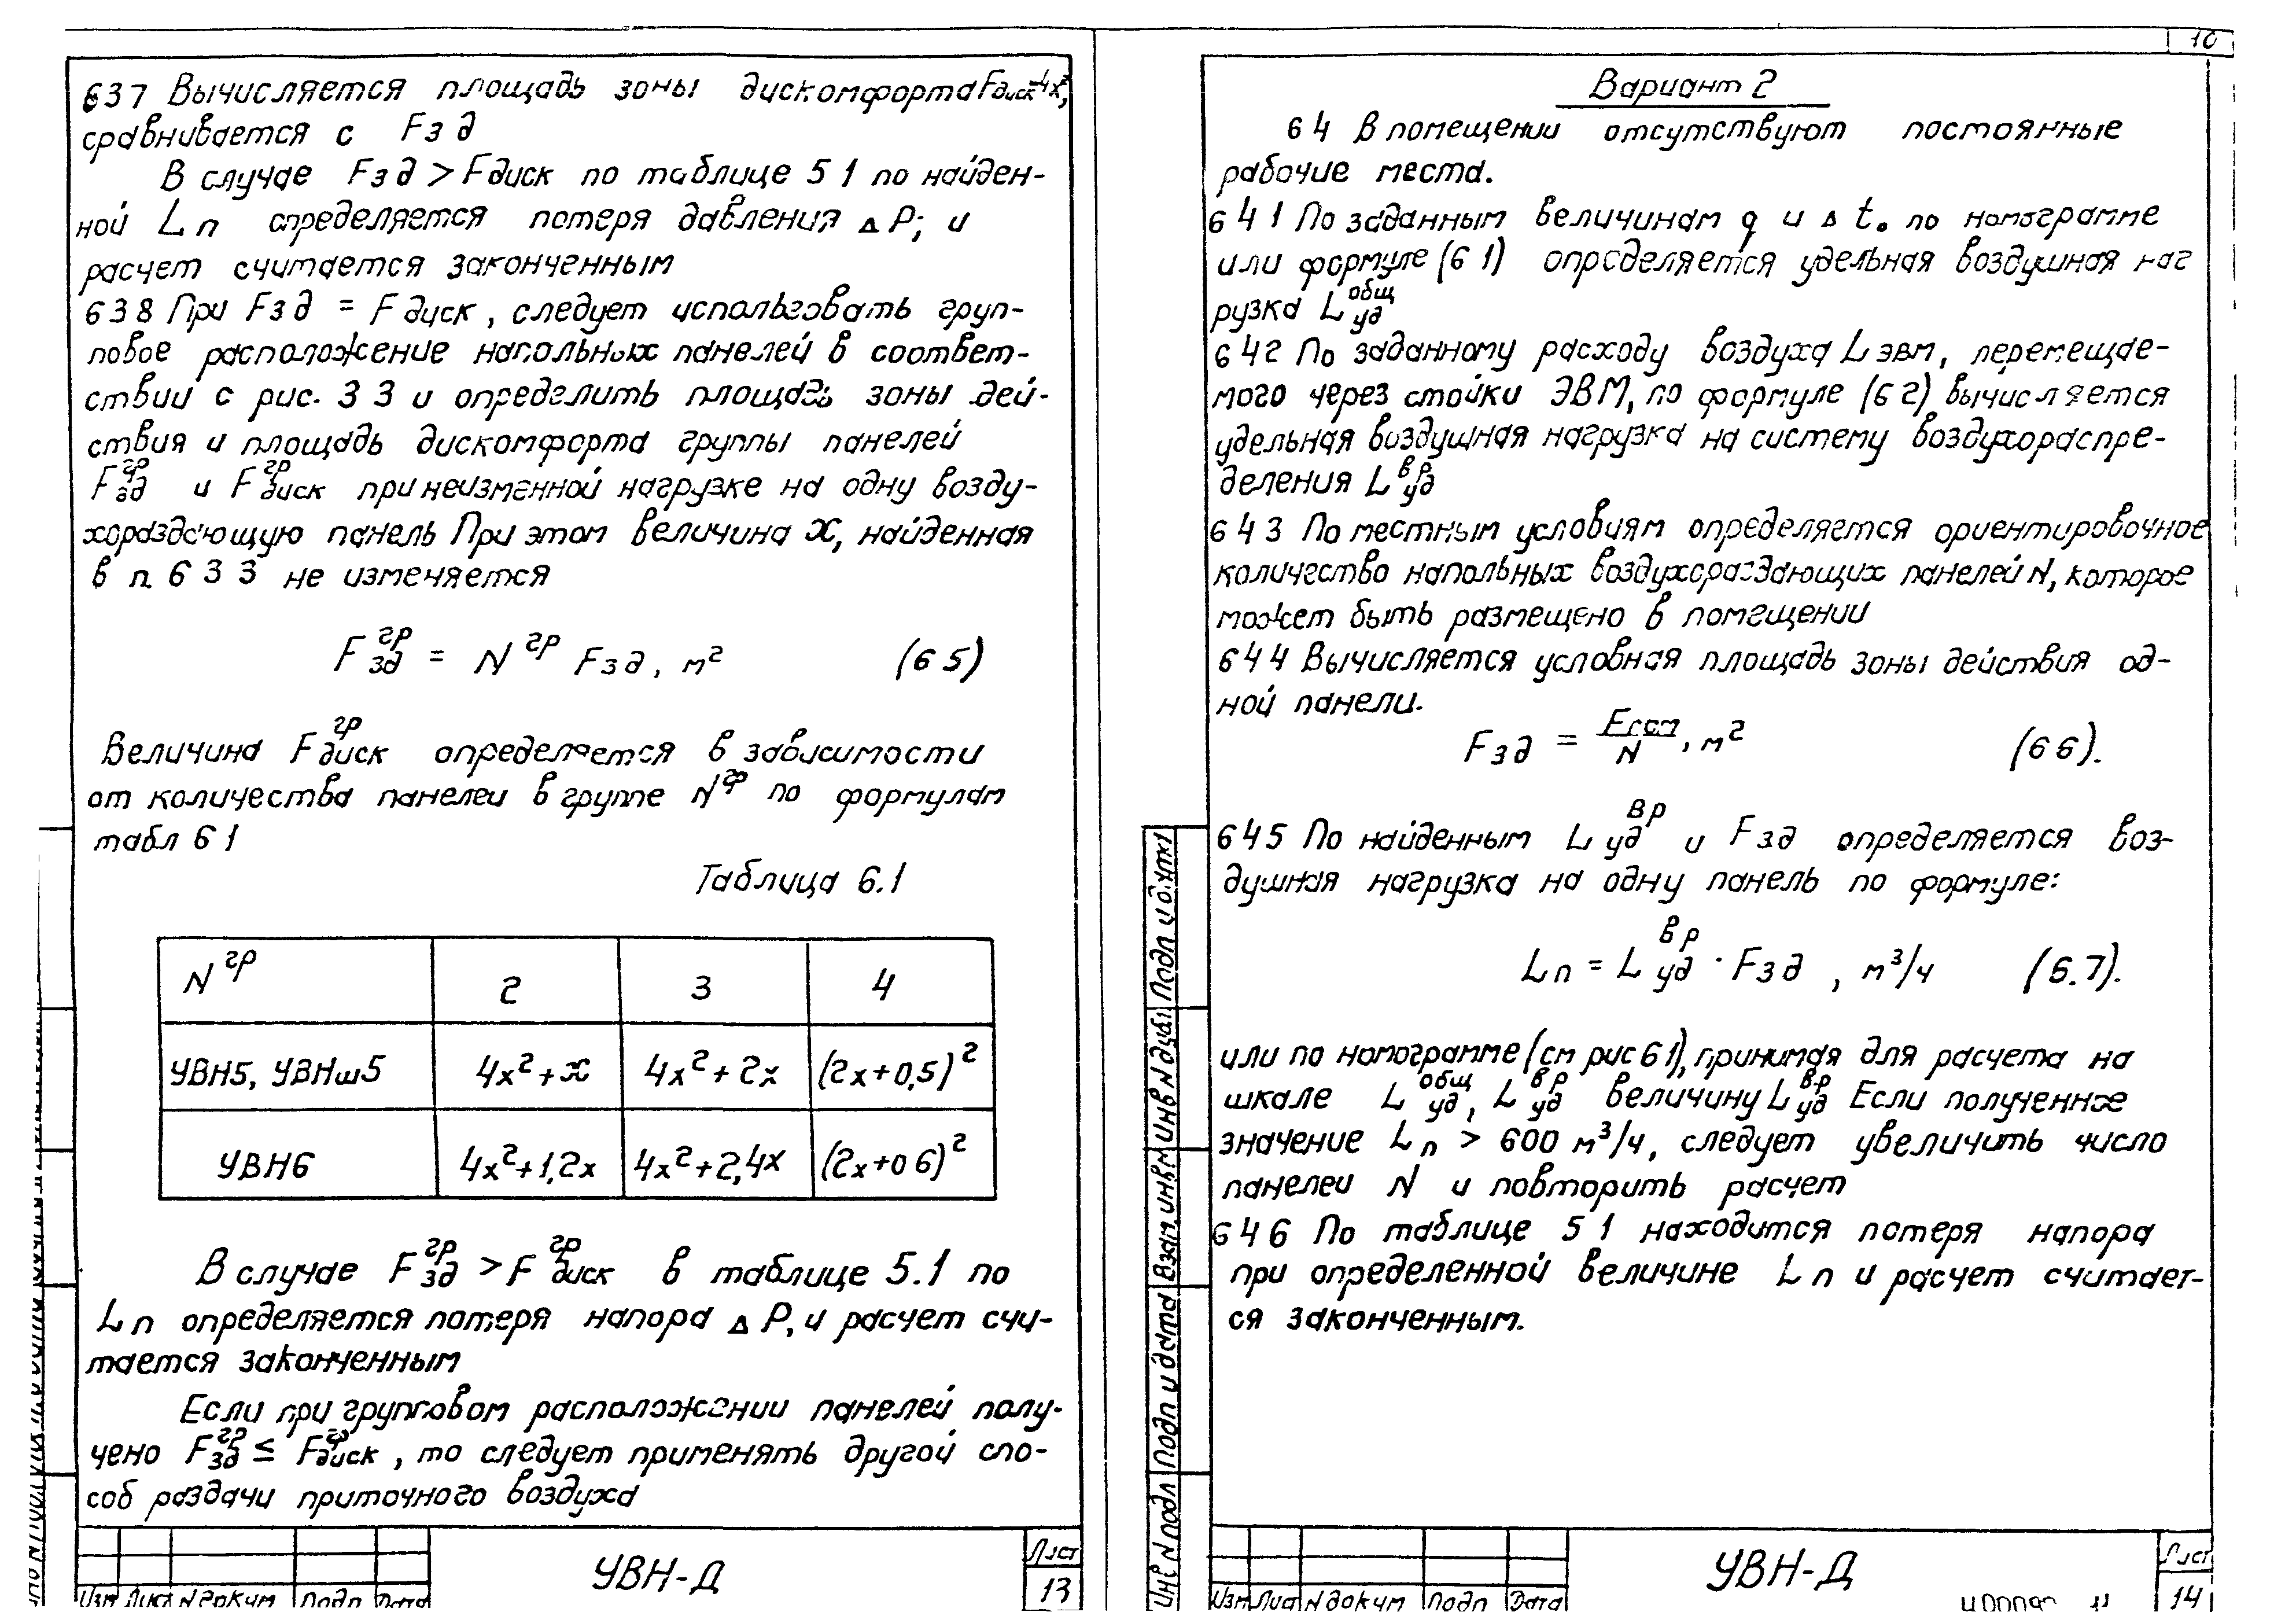 10
637 Вычисляется площадь зоны дискомфорта Fдиск=4x²,
сравнивается с Fзд
В случае Fзд > Fдиск по таблице 51 по найден-
ной Lп определяется потеря давления ΔP; и
расчет считается законченным
638 При Fзд = Fдиск, следует использовать груп-
повое расположение напольных панелей в соответ-
ствии с рис. 33 и определить площадь зоны дей-
ствия и площадь дискомфорта группы панелей
Fзд^гр и Fдиск^гр при неизменной нагрузке на одну возду-
хораздающую панель При этом величина x, найденная
в п 633 не изменяется
Fзд^гр = N^гр Fзд, м² (65)
Величина Fдиск^гр определяется в зависимости
от количества панелей в группе N^гр по формулам
табл 61
Таблица 6.1
N^гр 2 3 4
УВН5, УВНш5 4x²+x 4x²+2x (2x+0,5)²
УВН6 4x²+1,2x 4x²+2,4x (2x+06)²
В случае Fзд^гр > Fдиск^гр в таблице 5.1 по
Lп определяется потеря напора ΔP, и расчет счи-
тается законченным
Если при групповом расположении панелей полу-
чено Fзд^гр ≤ Fдиск^гр, то следует применять другой спо-
соб раздачи приточного воздуха
УВН-Д
Лист
13
Изм Лист N докум Подп Дата
Вариант 2
64 В помещении отсутствуют постоянные
рабочие места.
641 По заданным величинам q и Δt₀ по номограмме
или формуле (61) определяется удельная воздушная наг
рузка Lуд^общ
642 По заданному расходу воздуха Lэвм, перемещае-
мого через стойки ЭВМ, по формуле (62) вычисляется
удельная воздушная нагрузка на систему воздухораспре-
деления Lуд^вр
643 По местным условиям определяется ориентировочное
количество напольных воздухораздающих панелей N, которое
может быть размещено в помещении
644 Вычисляется условная площадь зоны действия од-
ной панели.
Fзд = Fсом/N, м² (66).
645 По найденным Lуд^вр и Fзд определяется воз-
душная нагрузка на одну панель по формуле:
Lп = Lуд^вр · Fзд, м³/ч (6.7).
или по номограмме (см рис 61), принимая для расчета на
шкале Lуд^общ, Lуд^вр величину Lуд^вр Если полученное
значение Lп > 600 м³/ч, следует увеличить число
панелеи N и повторить расчет
646 По таблице 51 находится потеря напора
при определенной величине Lп и расчет считает-
ся законченным.
Инв N подл Подп и дата Взам инв N Инв N дубл Подп и дата
УВН-Д
Лист
14
Изм Лист N докум Подп Дата